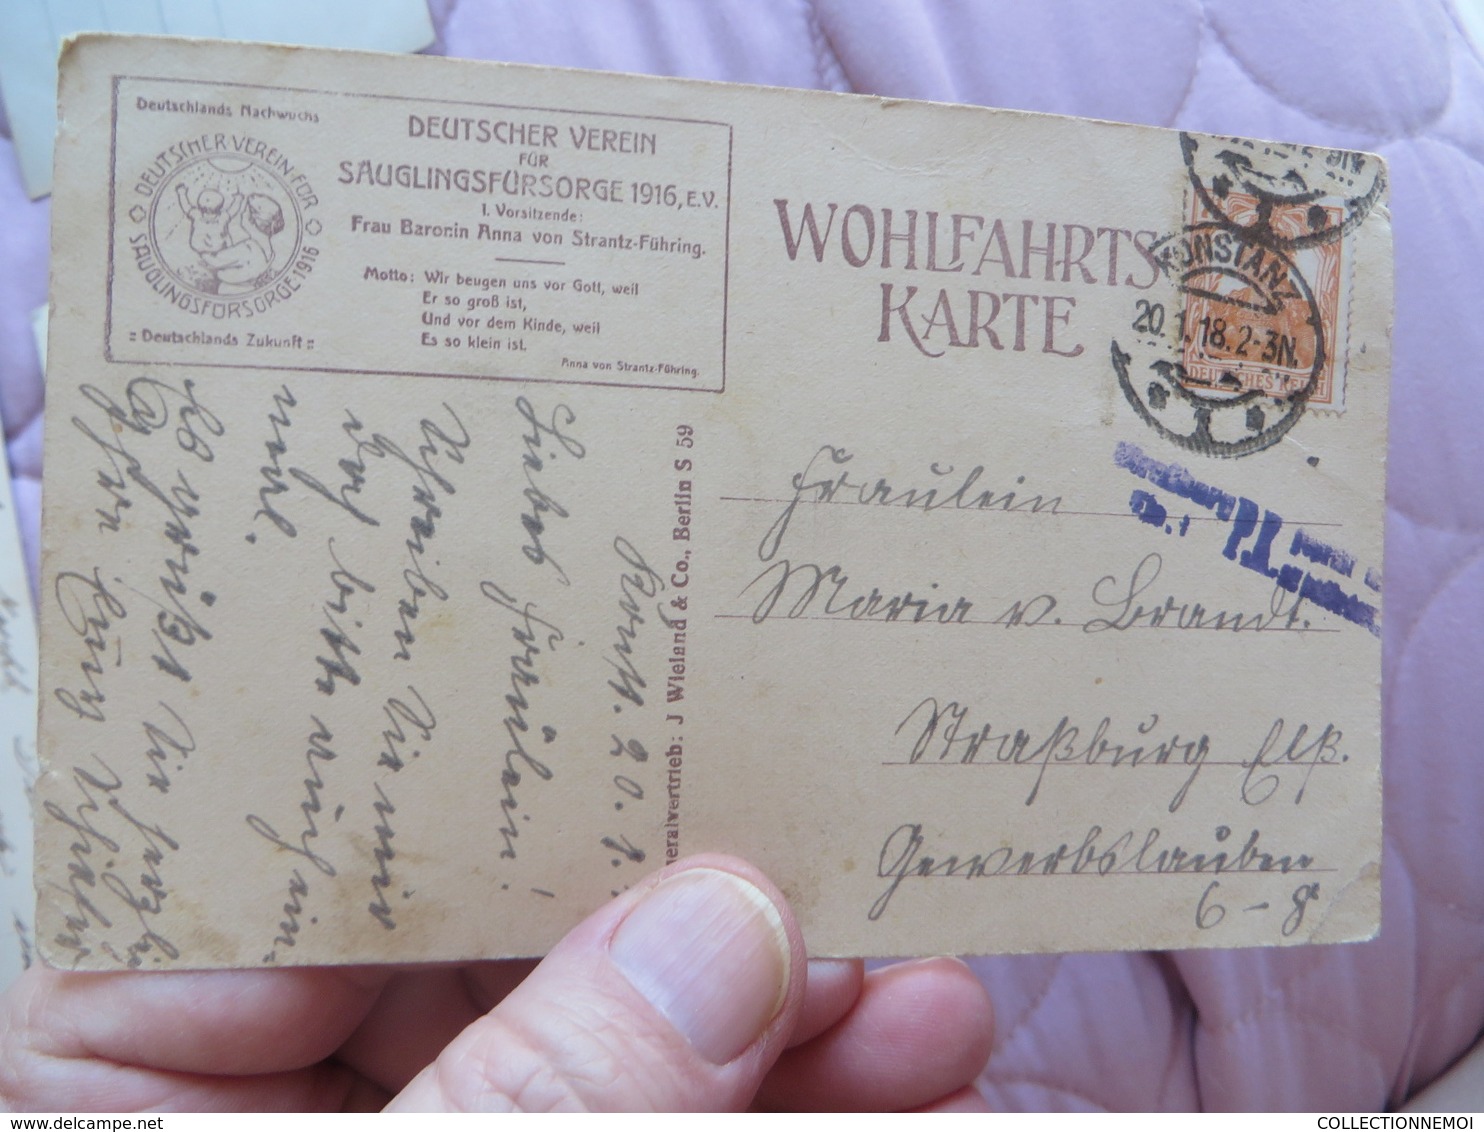 Deutschlands Nachwuchs
DEUTSCHER VEREIN FÜR SÄUGLINGSFÜRSORGE 1916
:: Deutschlands Zukunft ::
DEUTSCHER VEREIN
FÜR
SÄUGLINGSFÜRSORGE 1916, E.V.
1. Vorsitzende:
Frau Baronin Anna von Strantz-Führing.
Motto: Wir beugen uns vor Gott, weil
Er so groß ist,
Und vor dem Kinde, weil
Es so klein ist.
Anna von Strantz-Führing.
WOHLFAHRTS
KARTE
KONSTANZ
20.1.18.2-3N.
DEUTSCHES REICH
P.K.
Fräulein
Maria v. Brandt.
Straßburg Elß.
Gewerbslauben
6-8
neralvertrieb: J Wieland & Co., Berlin S 59
Konst. 20. 1.
Liebes Fräulein!
Schreiben Sie mir
doch bitte auch ein=
mal.
Es grüßt Sie herzlich